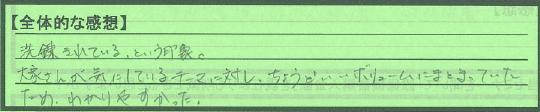 【全体的な感想】
洗錬されている、という印象。
大家さんが気にしているテーマに対し、ちょうどいいボリュームにまとまっていた
ため、わかりやすかった。